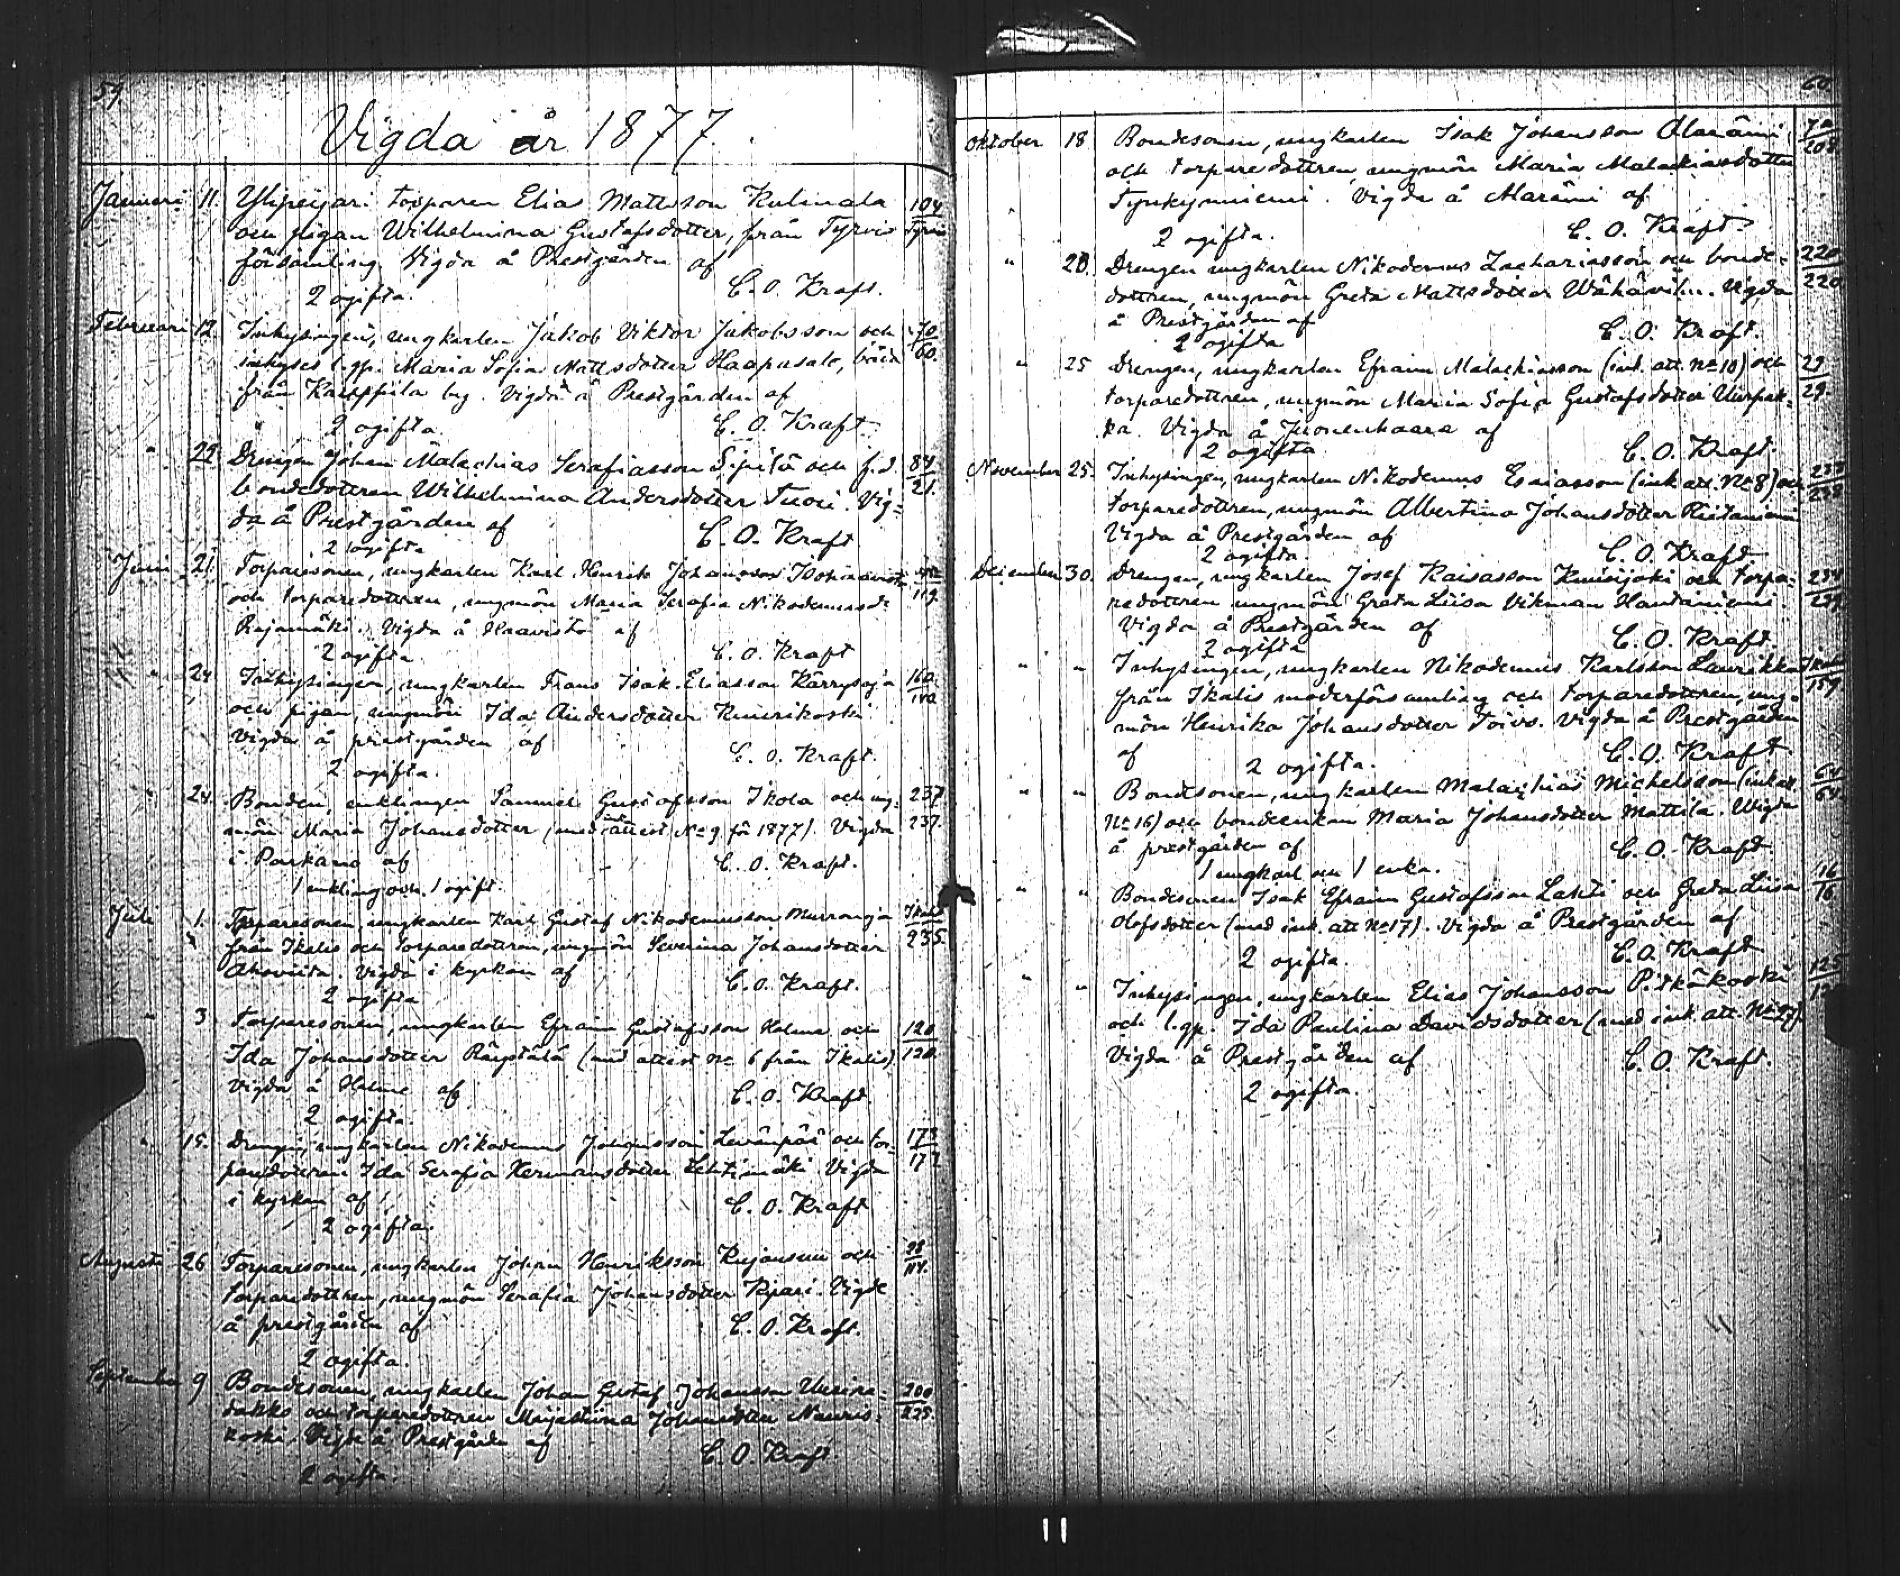 59
Vigda år 1877.
Januari 11. Ylipeijari torparen Elias Mattsson Kulmala 104
och pigan Wilhelmina Gustafsdotter, från Tyrvis Tyrvis
församling. Vigda å Prestgården af
2 ogifta. C. O. Kraft.
Februari 12. Inhysingen, ungkarlen Jakob Viktor Jakobsson och 70
inhyses l. qp. Maria Sofia Mattsdotter Haapasalo, båda 60.
från by. Vigda å Prestgården af
2 ogifta. C. O. Kraft.
" 22 Drengen Johan Malachias Serafiasson Sipilä och f.d. 84
bondedottren Wilhelmina Andersdotter Tuori. Vig- 21.
da å Prestgården af
2 ogifta C. O. Kraft.
Juni 21. Torparesonen, ungkarlen Karl Henrik Johansson
och torparedottren, ungmön Maria Serafia Nikodemusd: 119.
Rajamäki. Vigda å Haavisto af
2 ogifta. C. O. Kraft
" 24 Inhysingen, ungkarlen Frans Isak Eliasson Kärrysoja 160.
och pigan, ungmön Ida Andersdotter
Vigda å prestgården af
2 ogifta. C. O. Kraft.
" 24. Bonden, enklingen Samuel Gustafsson Ikola och ung- 237
mön Maria Johansdotter (med ink attest No 9 för 1877). Vigda 237.
i Parkano af C. O. Kraft.
1 enkling och 1 ogift.
Juli 1. Torparesonen, ungkarlen Karl Gustaf Nikodemusson Murronoja Ikalis
från Ikalis och torparedottren, ungmön Severina Johansdotter 235.
Ahoviita. Vigda i kyrkan af C. O. Kraft.
2 ogifta
" 3 Torparesonen, ungkarlen Efraim Gustafsson Holma och 120
Ida Johansdotter (med attest No 6 från Ikalis) 120.
Vigda å Holma af C. O. Kraft.
2 ogifta.
" 15. Drengen, ungkarlen Nikodemus Johansson Levänpää och tor- 172
paredottren Ida Serafia Hermansdotter Lehtimäki Vigda 177
i kyrkan af C. O. Kraft
2 ogifta.
Augusti 26 Torparesonen, ungkarlen Johan Henriksson Kujansuu och 98
torparedottren, ungmön Serafia Johansdotter Kjari. Vigde 114.
å prestgården af C. O. Kraft.
2 ogifta.
September 9 Bondesonen, ungkarlen Johan Gustaf Johansson 200
och torparedottren Majastina Johansdotter Nauris- 225.
koski. Vigde å Prestgården af C. O. Kraft.
2 ogifta.
60
Oktober 18 Bondesonen, ungkarlen Isak Johansson Alarämi
och torparedottren ungmön Maria Malackiasdotter 208
Tynkyniemi. Vigda å Alarämi af
2 ogifta. C. O. Kraft.
" 20. Drengen ungkarlen Nikodemus Zachariasson och bonde- 220
dottren, ungmön Greta Mattsdotter Wähävihu. Vigda 220
å Prestgården af C. O. Kraft.
2 ogifta
" 25 Drengen, ungkarlen Efraim Malackiasson (ink. att. No 10) och 29
torparedottren, ungmön Maria Sofia Gustafsdotter Uurpak- 29.
ka. Vigda å Juonenhaara af
2 ogifta C. O. Kraft.
November 25. Inhysingen, ungkarlen Nikodemus Esaiasson (ink. att. No 8) och 238
torparedottren, ungmön Albertina Johansdotter Rietaniemi 238
Vigda å Prestgården af
2 ogifta. C. O. Kraft
December 30. Drengen, ungkarlen Josef Kaisasson Kuusijoki och torpa- 234
redottren ungmön Greta Liisa Vikman Hautaniemi. 239
Vigda å Prestgården af
2 ogifta C. O. Kraft
" " Inhysingen, ungkarlen Nikodemus Karlsson Laurikka Ikalis
från Ikalis moderförsamling och torparedottren, ung- 159.
mön Henrika Johansdotter Toivo. Vigda å Prestgården
af 2 ogifta. C. O. Kraft
" " Bondesonen, ungkarlen Malachias Michelsson (ink att 64
No 16) och bondeenkan Maria Johansdotter Mattila. Vigda 64.
å prestgården af C. O. Kraft
1 ungkarl och 1 enka.
" " Bondesonen Isak Efraim Gustafsson Lahti och Greta Liisa 16
Olofsdotter (med ink. att No 17). Vigda å Prestgården af 16
2 ogifta. C. O. Kraft
" " Inhysingen, ungkarlen Elias Johansson Pitkäkoski 125
och l. qp. Ida Paulina Davidsdotter (med ink. att. No 27).
Vigda å Prestgården af C. O. Kraft.
2 ogifta.
11